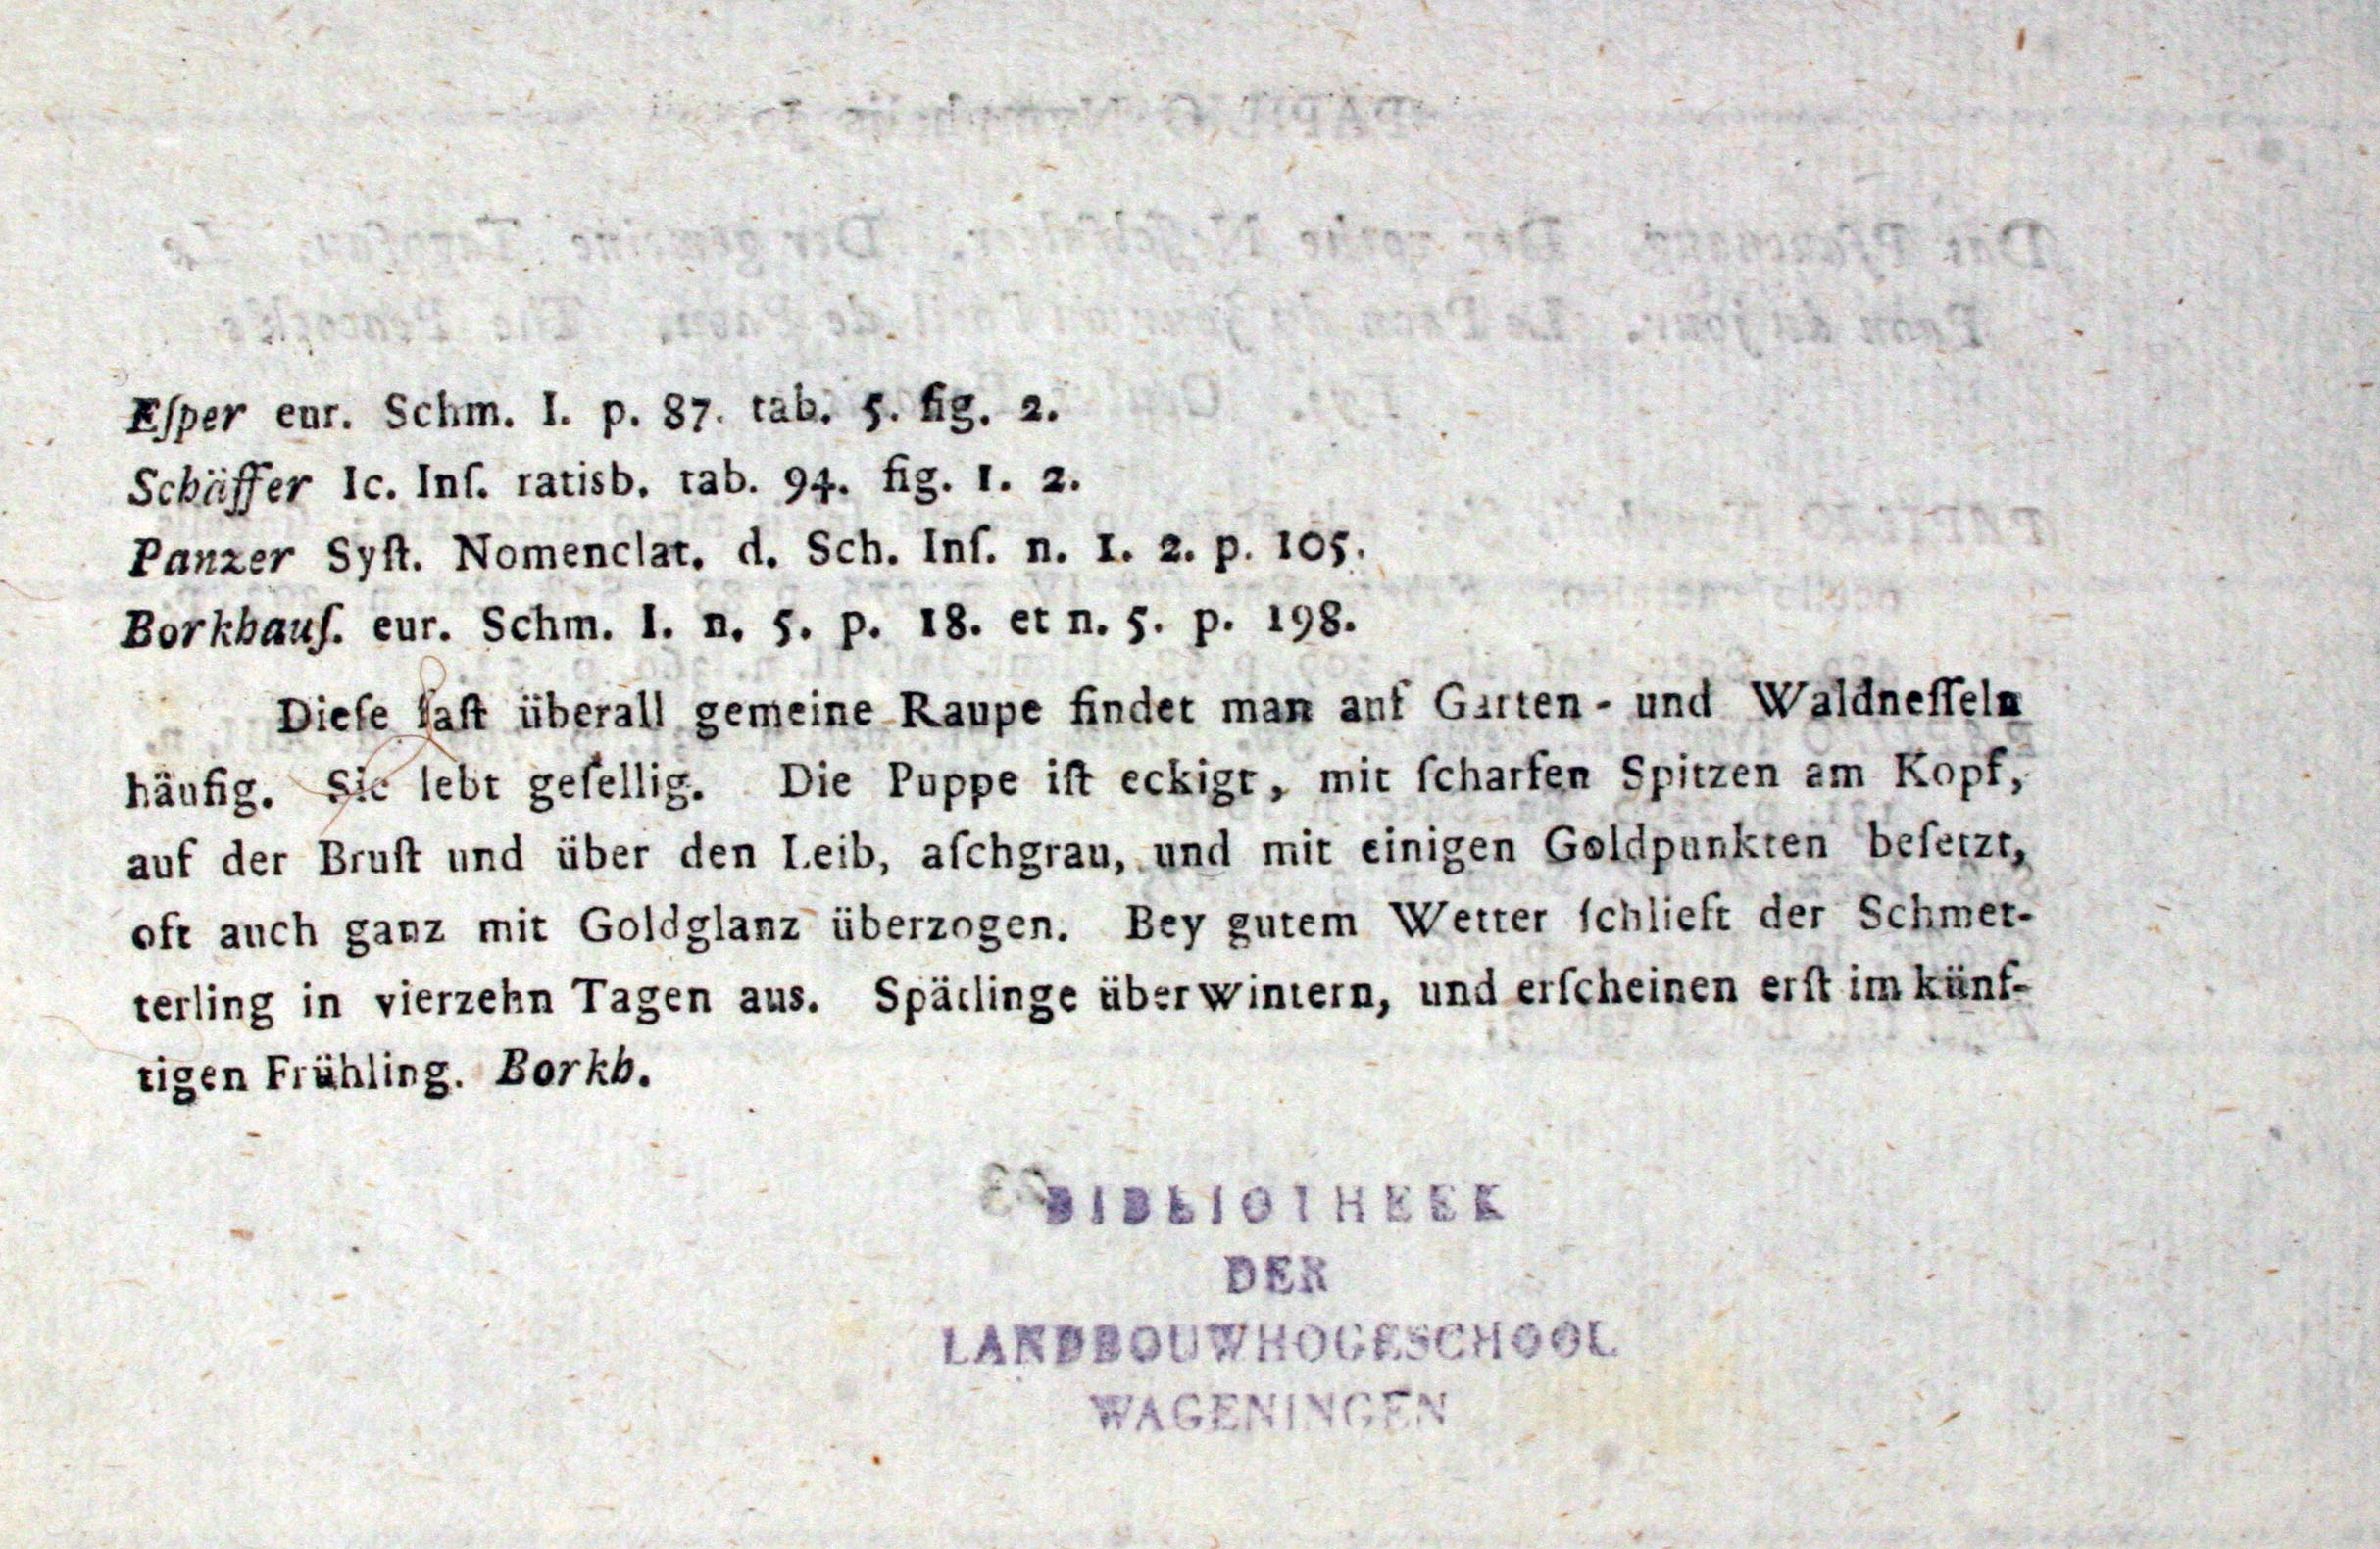 Eſper eur. Schm. I. p. 87. tab. 5. fig. 2.
Schäffer Ic. Inſ. ratisb. tab. 94. fig. 1. 2.
Panzer Syſt. Nomenclat. d. Sch. Inſ. n. 1. 2. p. 105.
Borkhauſ. eur. Schm. I. n. 5. p. 18. et n. 5. p. 198.
Dieſe faſt überall gemeine Raupe findet man auf Garten- und Waldneſſeln
häufig. Sie lebt geſellig. Die Puppe iſt eckigt, mit ſcharfen Spitzen am Kopf,
auf der Bruſt und über den Leib, aſchgrau, und mit einigen Goldpunkten beſetzt,
oft auch ganz mit Goldglanz überzogen. Bey gutem Wetter ſchlieft der Schmet-
terling in vierzehn Tagen aus. Spätlinge überwintern, und erſcheinen erſt im künf-
tigen Frühling. Borkh.
BIBLIOTHEEK
DER
LANDBOUWHOGESCHOOL
WAGENINGEN